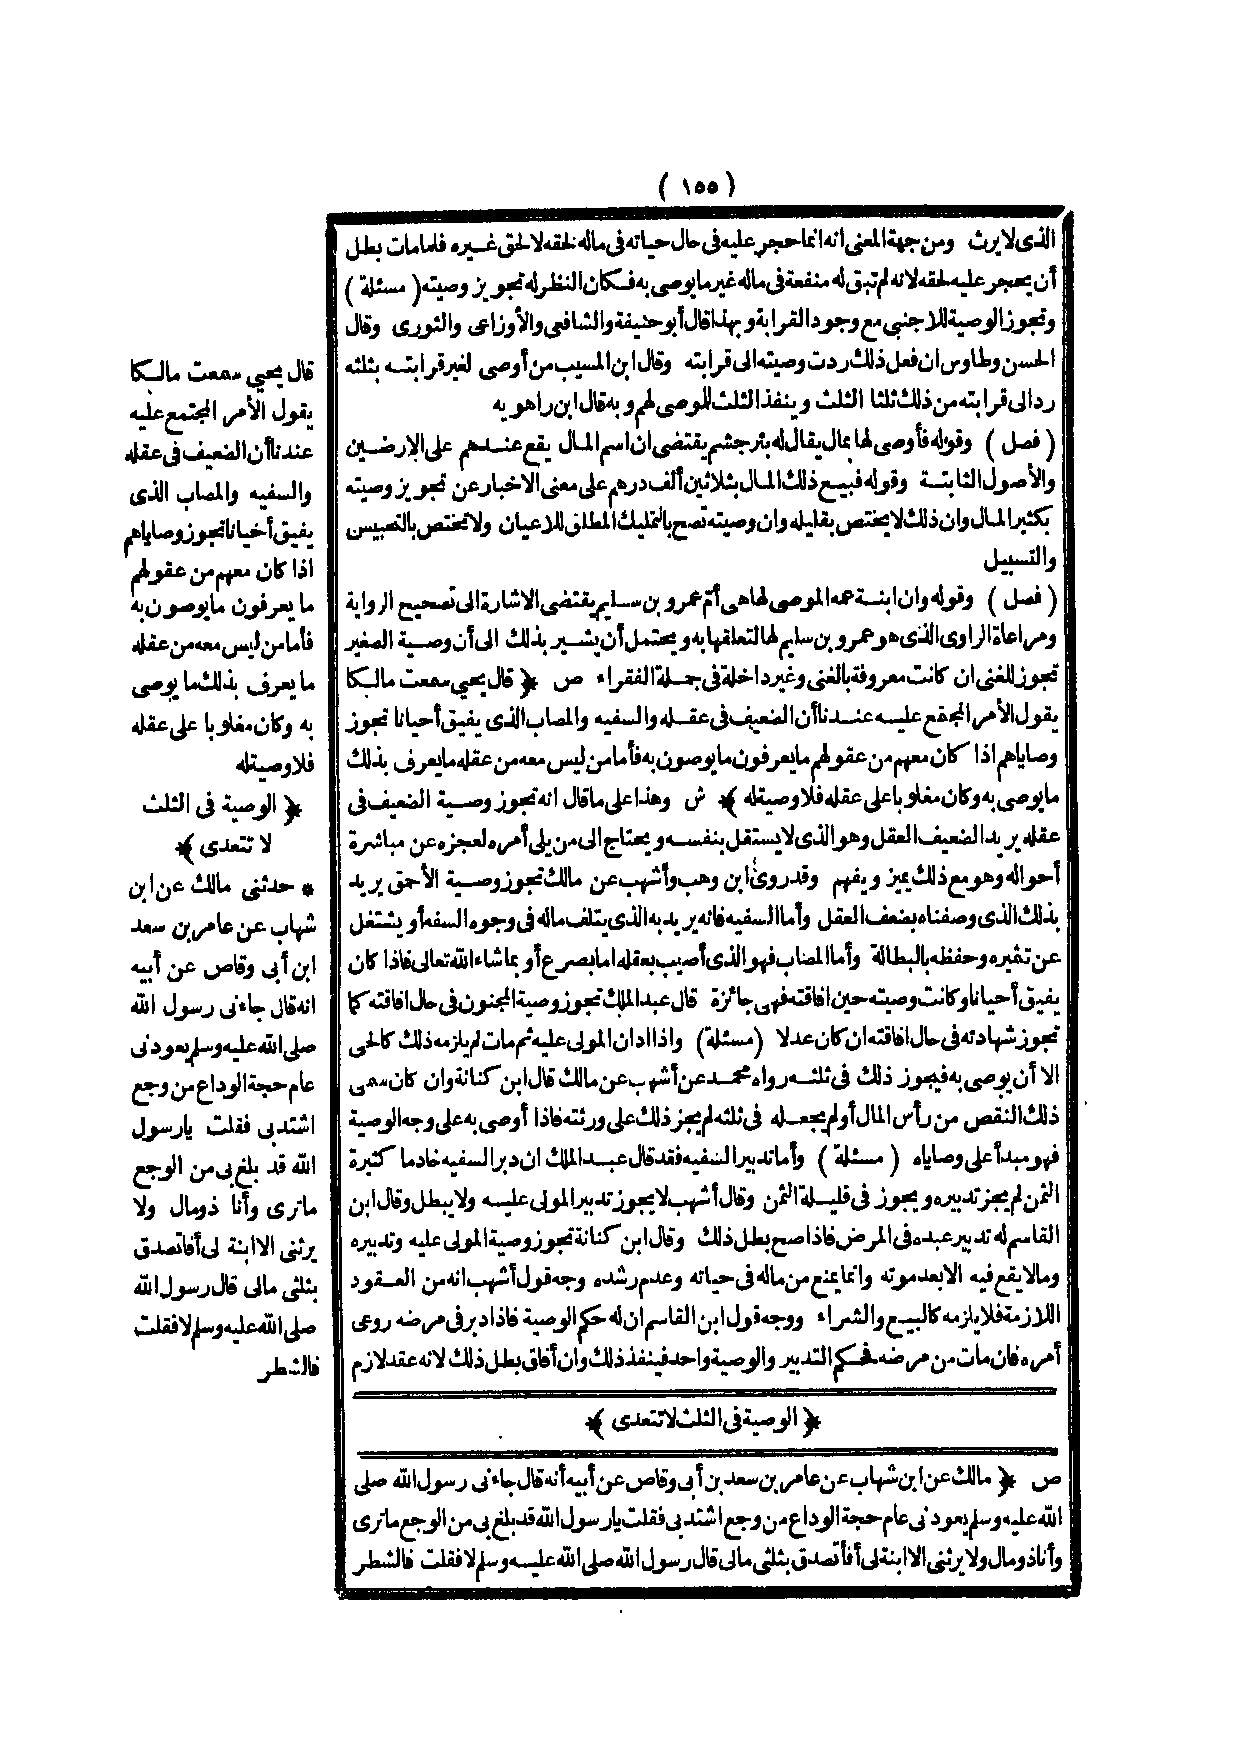 ( ١٥٥ )
الذى لا يرث ومن جهة المعنى انه انما حجر عليه فى حال حياته فى ماله لحقه لا لحق غيره فلما مات بطل
أن يحجر عليه لحقه لانه لم تبق له منفعة فى ماله غير ما يوصى به فكان النظر له تجويز وصيته ( مسئلة )
وتجوز الوصية للاجنبى مع وجود القرابة وبهذا قال أبو حنيفة والشافعى والأوزاعى والثورى وقال
الحسن وطاوس ان فعل ذلك ردت وصيته الى قرابته وقال ابن المسيب من أوصى لغير قرابته بثلثه
رد الى قرابته من ذلك ثلثا الثلث وينفذ الثلث للموصى لهم وبه قال ابن راهويه
( فصل ) وقوله فأوصى لها بمال يقال له بئر جشم يقتضى ان اسم المال يقع عندهم على الارضين
والأصول الثابتة وقوله فبيع ذلك المال بثلاثين ألف درهم على معنى الاخبار عن تجويز وصيته
بكثير المال وان ذلك لا يختص بقليله وان وصيته تصح بالتمليك المطلق للاعيان ولا تختص بالتحبيس
والتسبيل
( فصل ) وقوله وان ابنة عمه الموصى لها هى أم عمرو بن سليم يقتضى الاشارة الى تصحيح الرواية
ومراعاة الراوى الذى هو عمرو بن سليم لها لتعلقها به ويحتمل أن يشير بذلك الى أن وصية الصغير
تجوز للغنى ان كانت معروفة بالغنى وغير داخلة فى جملة الفقراء ص ﴿ قال يحيى سمعت مالكا
يقول الأمر المجتمع عليه عندنا أن الضعيف فى عقله والسفيه والمصاب الذى يفيق أحيانا تجوز
وصاياهم اذا كان معهم من عقولهم ما يعرفون ما يوصون به فأما من ليس معه من عقله ما يعرف بذلك
ما يوصى به وكان مغلوبا على عقله فلا وصية له ﴾ ش وهذا على ما قال انه تجوز وصية الضعيف فى
عقله يريد الضعيف العقل وهو الذى لا يستقل بنفسه ويحتاج الى من يلى أمره لعجزه عن مباشرة
أحواله وهو مع ذلك يميز ويفهم وقد روى ابن وهب وأشهب عن مالك تجوز وصية الأحمق يريد
بذلك الذى وصفناه بضعف العقل وأما السفيه فانه يريد به الذى يتلف ماله فى وجوه السفه أو يشتغل
عن تثميره وحفظه بالبطالة وأما المصاب فهو الذى أصيب بعقله اما بصرع أو بما شاء الله تعالى فاذا كان
يفيق أحيانا وكانت وصيته حين افاقته فهى جائزة قال عبد الملك تجوز وصية المجنون فى حال افاقته كما
تجوز شهادته فى حال افاقته ان كان عدلا (مسئلة) واذا ادان المولى عليه ثم مات لم يلزمه ذلك كالحى
الا أن يوصى به فيجوز ذلك فى ثلثه رواه محمد عن أشهب عن مالك قال ابن كنانة وان كان سمى
ذلك النقص من رأس المال أو لم يجعله فى ثلثه لم يجز ذلك على ورثته فاذا أوصى به على وجه الوصية
فهو مبدأ على وصاياه ( مسئلة ) وأما تدبير السفيه فقد قال عبد الملك ان دبر السفيه خادما كثيرة
الثمن لم يجز تدبيره ويجوز فى قليلة الثمن وقال أشهب لا يجوز تدبير المولى عليه ولا يبطل وقال ابن
القاسم له تدبير عبده فى المرض فاذا صح بطل ذلك وقال ابن كنانة تجوز وصية المولى عليه وتدبيره
ومالا يقع فيه الا بعد موته وانما يمنع من ماله فى حياته وعدم رشده وجه قول أشهب انه من العقود
اللازمة فلا يلزمه كالبيع والشراء ووجه قول ابن القاسم ان له حكم الوصية فاذا دبر فى مرضه روعى
أمره فان مات من مرضه فحكم التدبير والوصية واحد فينفذ ذلك وان أفاق بطل ذلك لانه عقد لازم
﴿ الوصية فى الثلث لا تتعدى ﴾
ص ﴿ مالك عن ابن شهاب عن عامر بن سعد بن أبى وقاص عن أبيه أنه قال جاءنى رسول الله صلى
الله عليه وسلم يعودنى عام حجة الوداع من وجع اشتد بى فقلت يا رسول الله قد بلغ بى من الوجع ما ترى
وأنا ذو مال ولا يرثنى الا ابنة لى أفأتصدق بثلثى مالى قال رسول الله صلى الله عليه وسلم لا فقلت فالشطر
قال يحيى سمعت مالكا
يقول الأمر المجتمع عليه
عندنا أن الضعيف فى عقله
والسفيه والمصاب الذى
يفيق أحيانا تجوز وصاياهم
اذا كان معهم من عقولهم
ما يعرفون ما يوصون به
فأما من ليس معه من عقله
ما يعرف بذلك ما يوصى
به وكان مغلوبا على عقله
فلا وصية له
﴿ الوصية فى الثلث
لا تتعدى ﴾
* حدثنى مالك عن ابن
شهاب عن عامر بن سعد
ابن أبى وقاص عن أبيه
انه قال جاءنى رسول الله
صلى الله عليه وسلم يعودنى
عام حجة الوداع من وجع
اشتد بى فقلت يا رسول
الله قد بلغ بى من الوجع
ما ترى وأنا ذو مال ولا
يرثنى الا ابنة لى أفأتصدق
بثلثى مالى قال رسول الله
صلى الله عليه وسلم لا فقلت
فالشطر